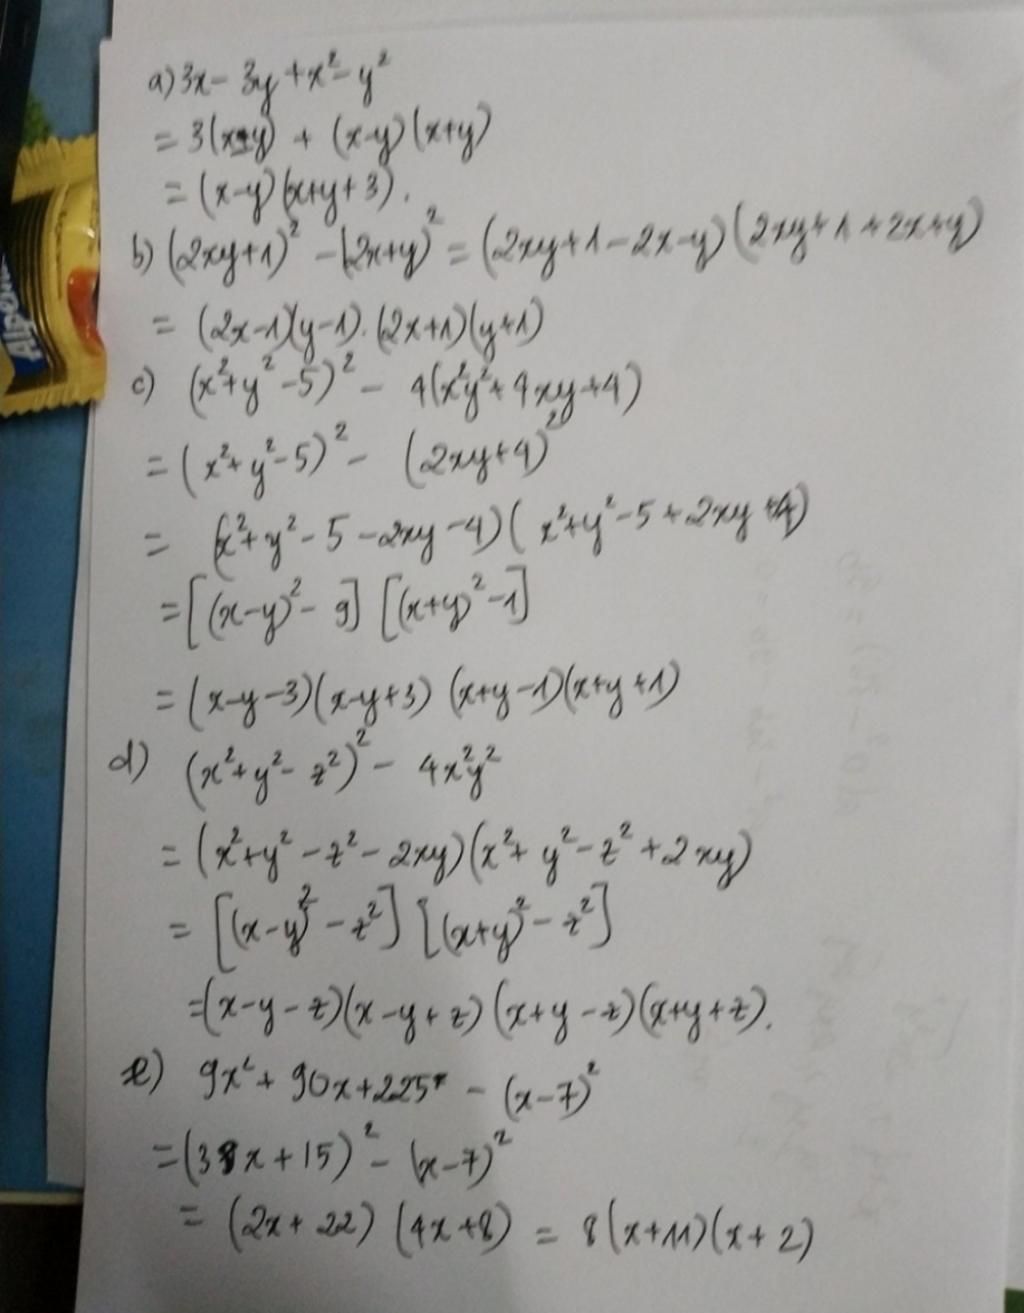 a) 3x - 3y + x² - y²
= 3(x-y) + (x-y)(x+y)
= (x-y)(x+y+3).
b) (2xy+1)² - (2x+y)² = (2xy+1-2x-y)(2xy+1+2x+y)
= (2x-1)(y-1).(2x+1)(y+1)
c) (x²+y²-5)² - 4(x²y²+4xy+4)
= (x²+y²-5)² - (2xy+4)²
= (x²+y²-5-2xy-4)(x²+y²-5+2xy+4)
= [(x-y)²-9] [(x+y)²-1]
= (x-y-3)(x-y+3) (x+y-1)(x+y+1)
d) (x²+y²-z²)² - 4x²y²
= (x²+y²-z²-2xy)(x²+y²-z²+2xy)
= [(x-y)²-z²] [(x+y)²-z²]
=(x-y-z)(x-y+z)(x+y-z)(x+y+z).
e) 9x²+90x+225 - (x-7)²
= (3x+15)² - (x-7)²
= (2x+22) (4x+8) = 8(x+11)(x+2)